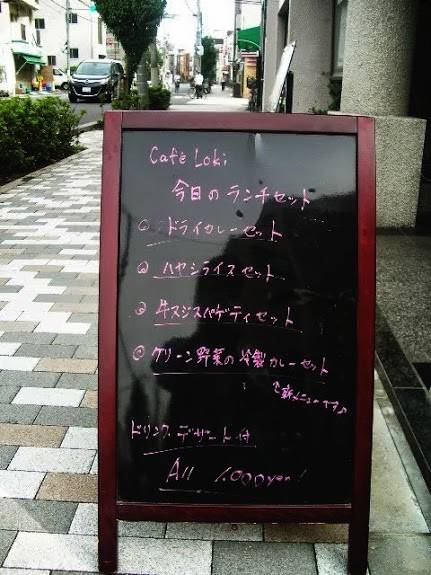 Café Loki
今日のランチセット
ドライカレーセット
ハヤシライスセット
牛スジスパゲティセット
グリーン野菜の冷製カレーセット
↑新メニューです♪
ドリンク、デザート付
All 1,000yen!